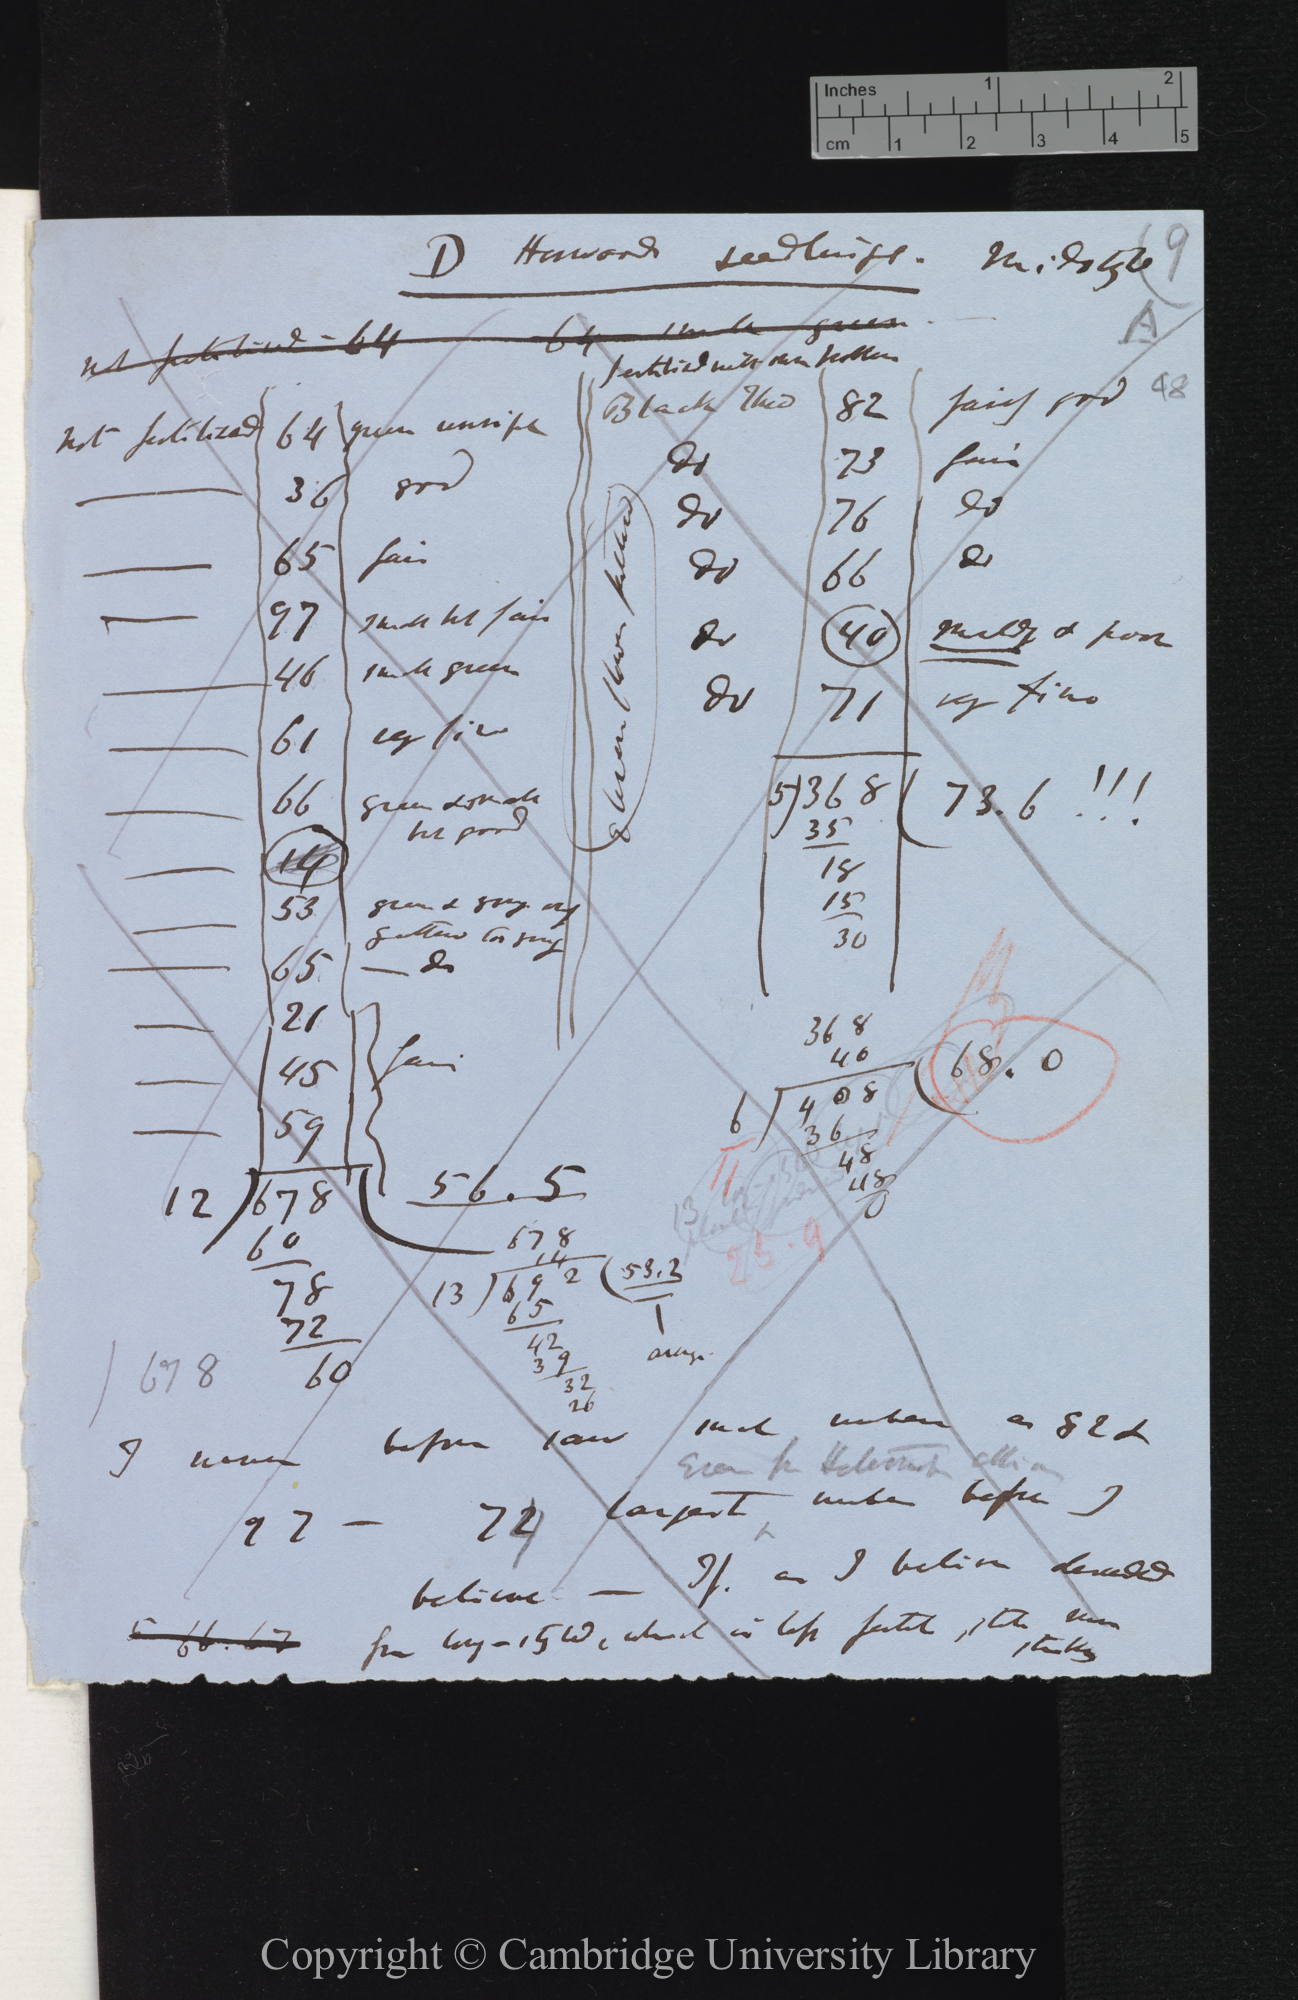 Inches 1 2
cm 1 2 3 4 5
69
D Horwoods seedlings. Midstyle
A
48
not fertilised - 64 64 small green
fertilised with own pollen
Not fertilized 64 green unripe
36 good
65 fair
97 small but fair
46 small green
61 very fine
66 green & small
but good
14
53 green &
65 — do
21
45 fair
59
12 ) 678 ( 56.5
60
78
72
60
678
14
13 ) 692 ( 53.2
65
42
39
32
26
average
) 678
Black Thread 82 fairly good
do 73 fair
do 76 do
do 66 do
do 40 & poor
do 71 very fine
5 ) 368 ( 73.6 !!!
35
18
15
30
368
40
6 ) 408 ( 68.0
36
48
48
0
11
13
25.9
I never before saw such numbers as 82 &
97 — 74 largest number before I
believe — If. as I believe descended
5 66.67 from long-styled, which is less fertile, still more
striking
Copyright © Cambridge University Library